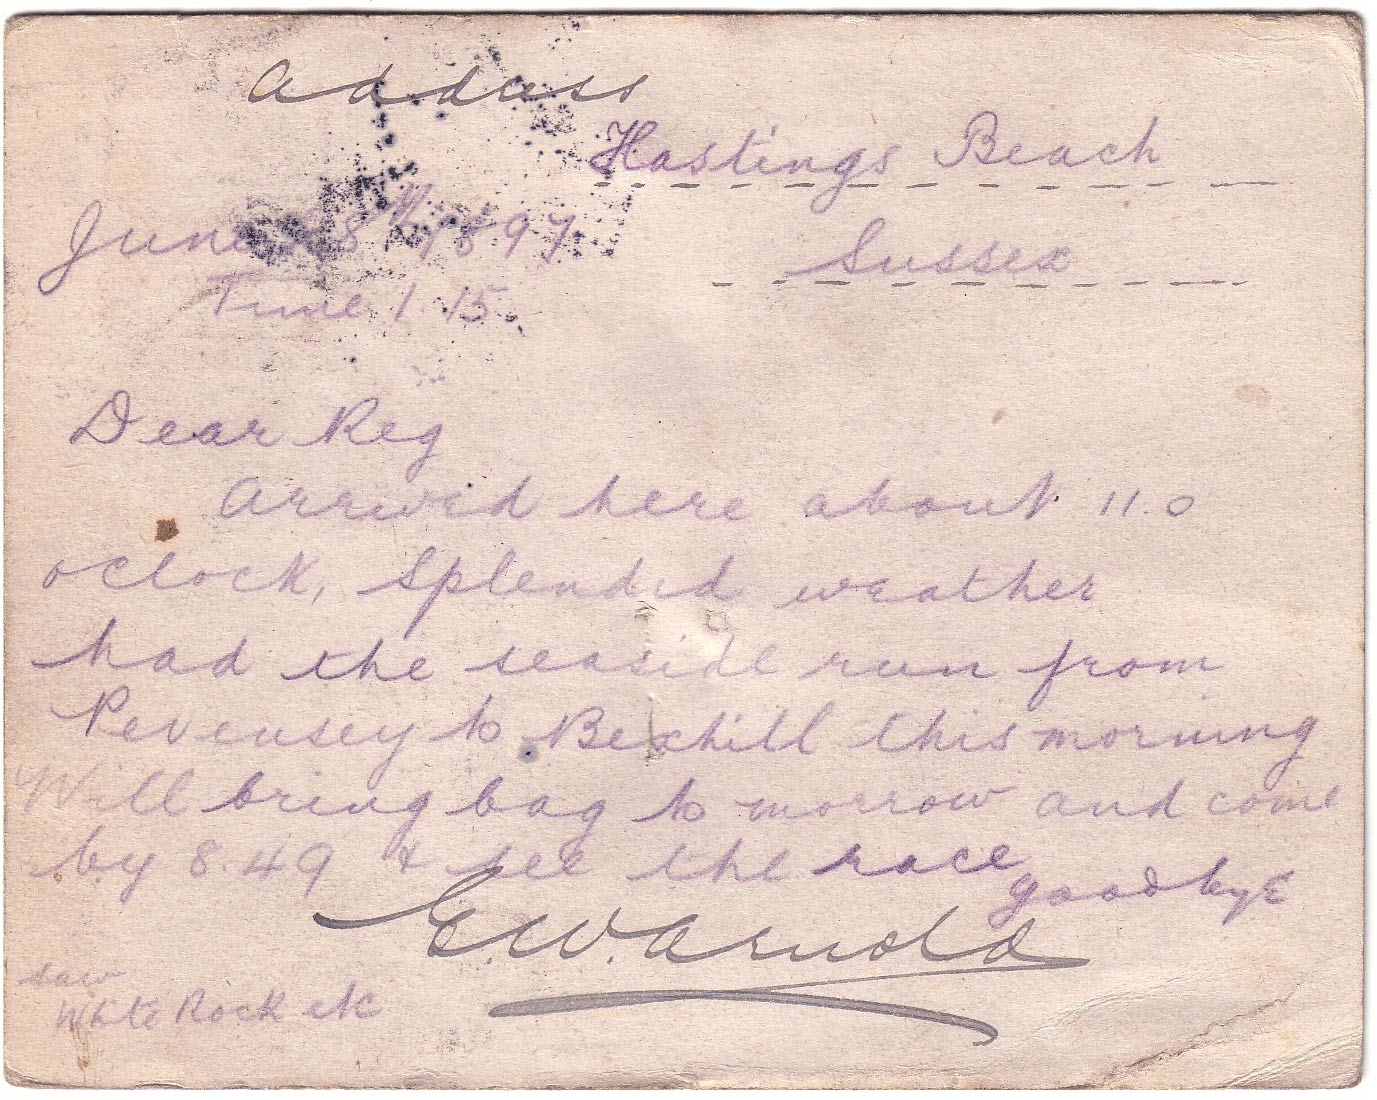 Address
Hastings Beach
Sussex
June 28th/1897
Time 1.15.
Dear Reg
Arrived here about 11.0
oclock, Splendid weather
had the seaside run from
Pevensey to Bexhill this morning
Will bring bag to morrow and come
by 8.49 & see the race
goodbye
E.W. Arnold
saw
White Rock etc